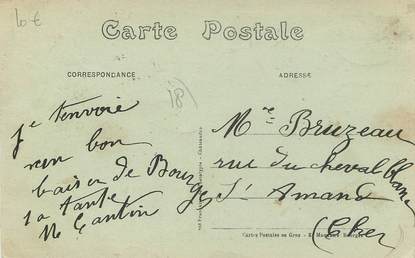 10 €
Carte Postale
CORRESPONDANCE
ADRESSE
18
Je t'envoie
un bon
baiser de Bourges
ta tante
M Cantin
Mme Bruzeau
rue du cheval blanc
St Amand
(Cher)
Cartes Postales en Gros - Bourges